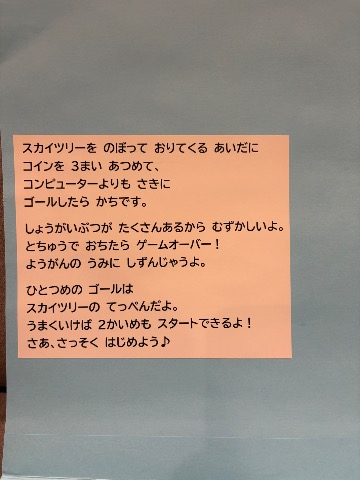 スカイツリーを のぼって おりてくる あいだに
コインを 3まい あつめて、
コンピューターよりも さきに
ゴールしたら かちです。
しょうがいぶつが たくさんあるから むずかしいよ。
とちゅうで おちたら ゲームオーバー！
ようがんの うみに しずんじゃうよ。
ひとつめの ゴールは
スカイツリーの てっぺんだよ。
うまくいけば 2かいめも スタートできるよ！
さあ、さっそく はじめよう♪